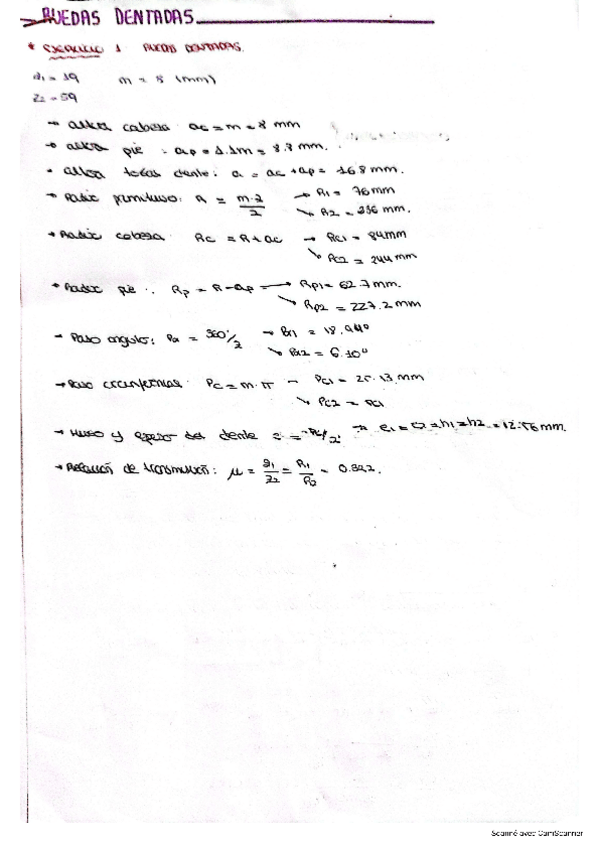 RUEDAS DENTADAS
* EJERCICIO 1 RUEDAS DENTADAS.
z1 = 19 m = 8 (mm)
z2 = 59
→ altura cabeza: ac = m = 8 mm
→ altura pie : ap = 1.1m = 8.8 mm.
• altura todas diente: a = ac + ap = 16.8 mm.
→ Radio primitivo: R = m·z/2 → R1 = 76 mm
↘ R2 = 236 mm.
→ Radio cabeza: Rc = R + ac → Rc1 = 84mm
↘ Rc2 = 244 mm
→ Radio pie : Rp = R - ap → Rp1 = 62.7 mm.
↘ Rp2 = 227.2 mm
→ Paso angular: Pa = 360°/z → Pa1 = 18.94°
↘ Pa2 = 6.10°
→ Paso circunferencial: Pc = m·π → Pc1 = 25.13 mm
↘ Pc2 = Pc1
→ Hueco y espesor del diente = Pc/2. → e1 = e2 = h1 = h2 = 12.56 mm.
→ Relación de transmisión: μ = z1/z2 = R1/R2 = 0.322.
Scanné avec CamScanner